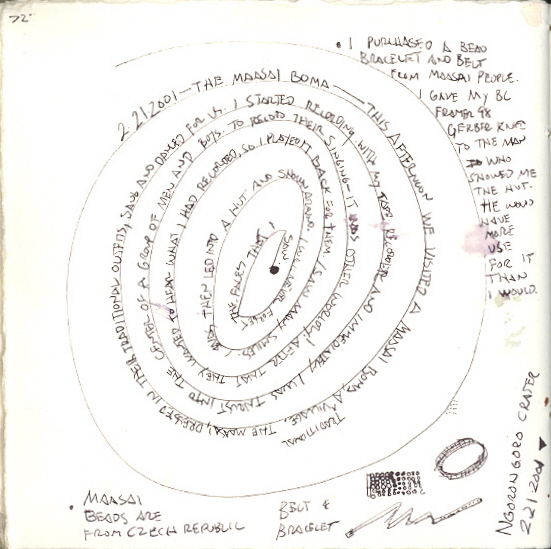 72.
• I PURCHASED A BEAD
BRACELET AND BELT
FROM MAASAI PEOPLE.
I GAVE MY BC
FRAMER 98
GERBER KNIFE
TO THE MAN
WHO
SHOWED ME
THE HUT.
HE WOULD
HAVE
MORE
USE
FOR IT
THAN
I WOULD.
2 21 2001 — THE MAASAI BOMA — THIS AFTERNOON WE VISITED A MAASAI BOMA, A TRADITIONAL VILLAGE. THE MAASAI, DRESSED IN THEIR TRADITIONAL OUTFITS, SANG AND DANCED FOR US. I STARTED RECORDING WITH MY TAPE RECORDER AND IMMEDIATELY, I WAS THRUST INTO THE CENTER OF A GROUP OF MEN AND BOYS. TO RECORD THEIR SINGING — IT WAS OTHER WORLDLY! AFTER THAT THEY WANTED TO HEAR WHAT I HAD RECORDED, SO I PLAYED IT BACK FOR THEM. I SAW MANY SMILES! I WAS THEN LED INTO A HUT AND SHOWN AROUND. I WILL NEVER FORGET THE FACES THAT I SAW.
• MAASAI
BEADS ARE
FROM CZECH REPUBLIC
BELT &
BRACELET
NGORONGORO CRATER
2 21 2001